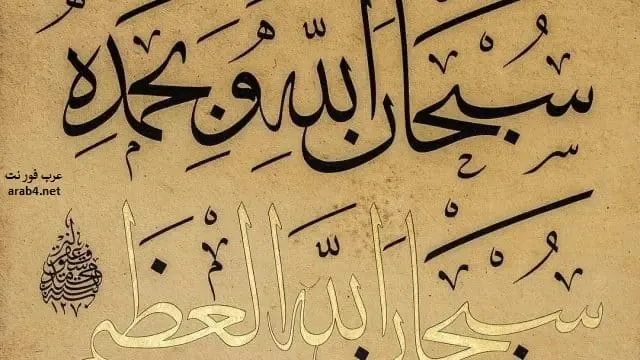 سُبْحَانَ اللّٰهِ وَبِحَمْدِهِ
عرب فور نت
arab4.net
سُبْحَانَ اللّٰهِ الْعَظِيم